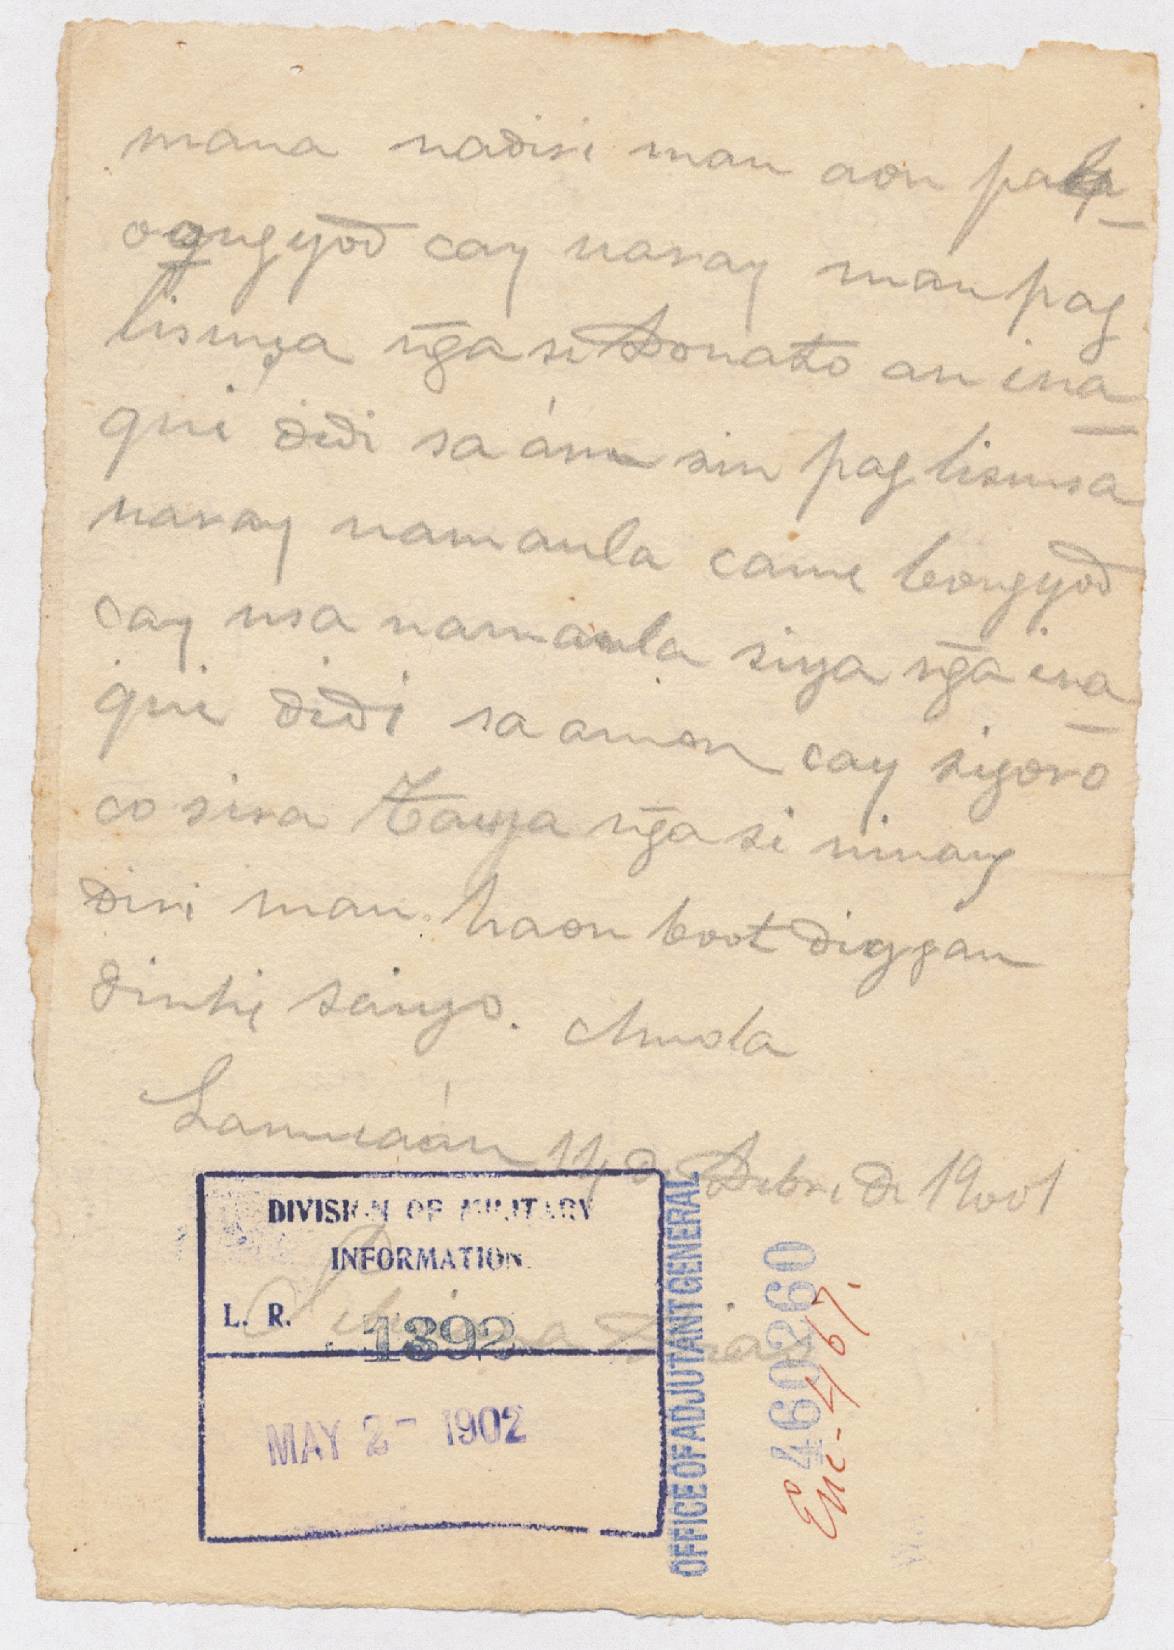 mana nadiri man aon pa
ogngyod cay waray man pag
lisinsa nga si Donato an ina
qui didi sa ámu sin pag lisinsa
waray namaula came bongyod
cay usa namaula siya nga ina
qui didi sa amon cay sigoro
co sira Tauya nga si ninay
diri man haon boot diggan
dinhi sainyo. Amola
14 de Debre de 1901
DIVISION OF MILITARY
INFORMATION.
L. R. 1392
MAY 2- 1902
OFFICE OF ADJUTANT GENERAL
460260
Enc-467.